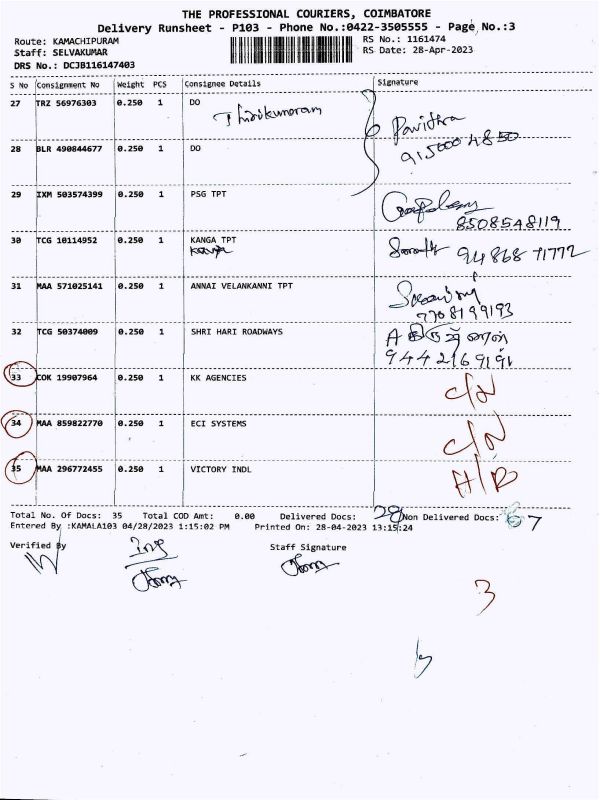 THE PROFESSIONAL COURIERS, COIMBATORE
Delivery Runsheet - P103 - Phone No.:0422-3505555 - Page No.:3
Route: KAMACHIPURAM
RS No.: 1161474
Staff: SELVAKUMAR
RS Date: 28-Apr-2023
DRS No.: DCJB116147403
S No Consignment No Weight PCS Consignee Details Signature
27 TRZ 56976303 0.250 1 DO
Pavithra
28 BLR 490844677 0.250 1 DO
915000 4850
29 IXM 503574399 0.250 1 PSG TPT
8508548119
30 TCG 10114952 0.250 1 KANGA TPT
94868 71772
31 MAA 571025141 0.250 1 ANNAI VELANKANNI TPT
7708199193
32 TCG 50374009 0.250 1 SHRI HARI ROADWAYS
9442169191
33 COK 19907964 0.250 1 KK AGENCIES C/N
34 MAA 859822770 0.250 1 ECI SYSTEMS C/N
35 MAA 296772455 0.250 1 VICTORY INDL
Total No. Of Docs: 35 Total COD Amt: 0.00 Delivered Docs: 28 Non Delivered Docs: 7
Entered By :KAMALA103 04/28/2023 1:15:02 PM Printed On: 28-04-2023 13:15:24
Verified By Staff Signature
3